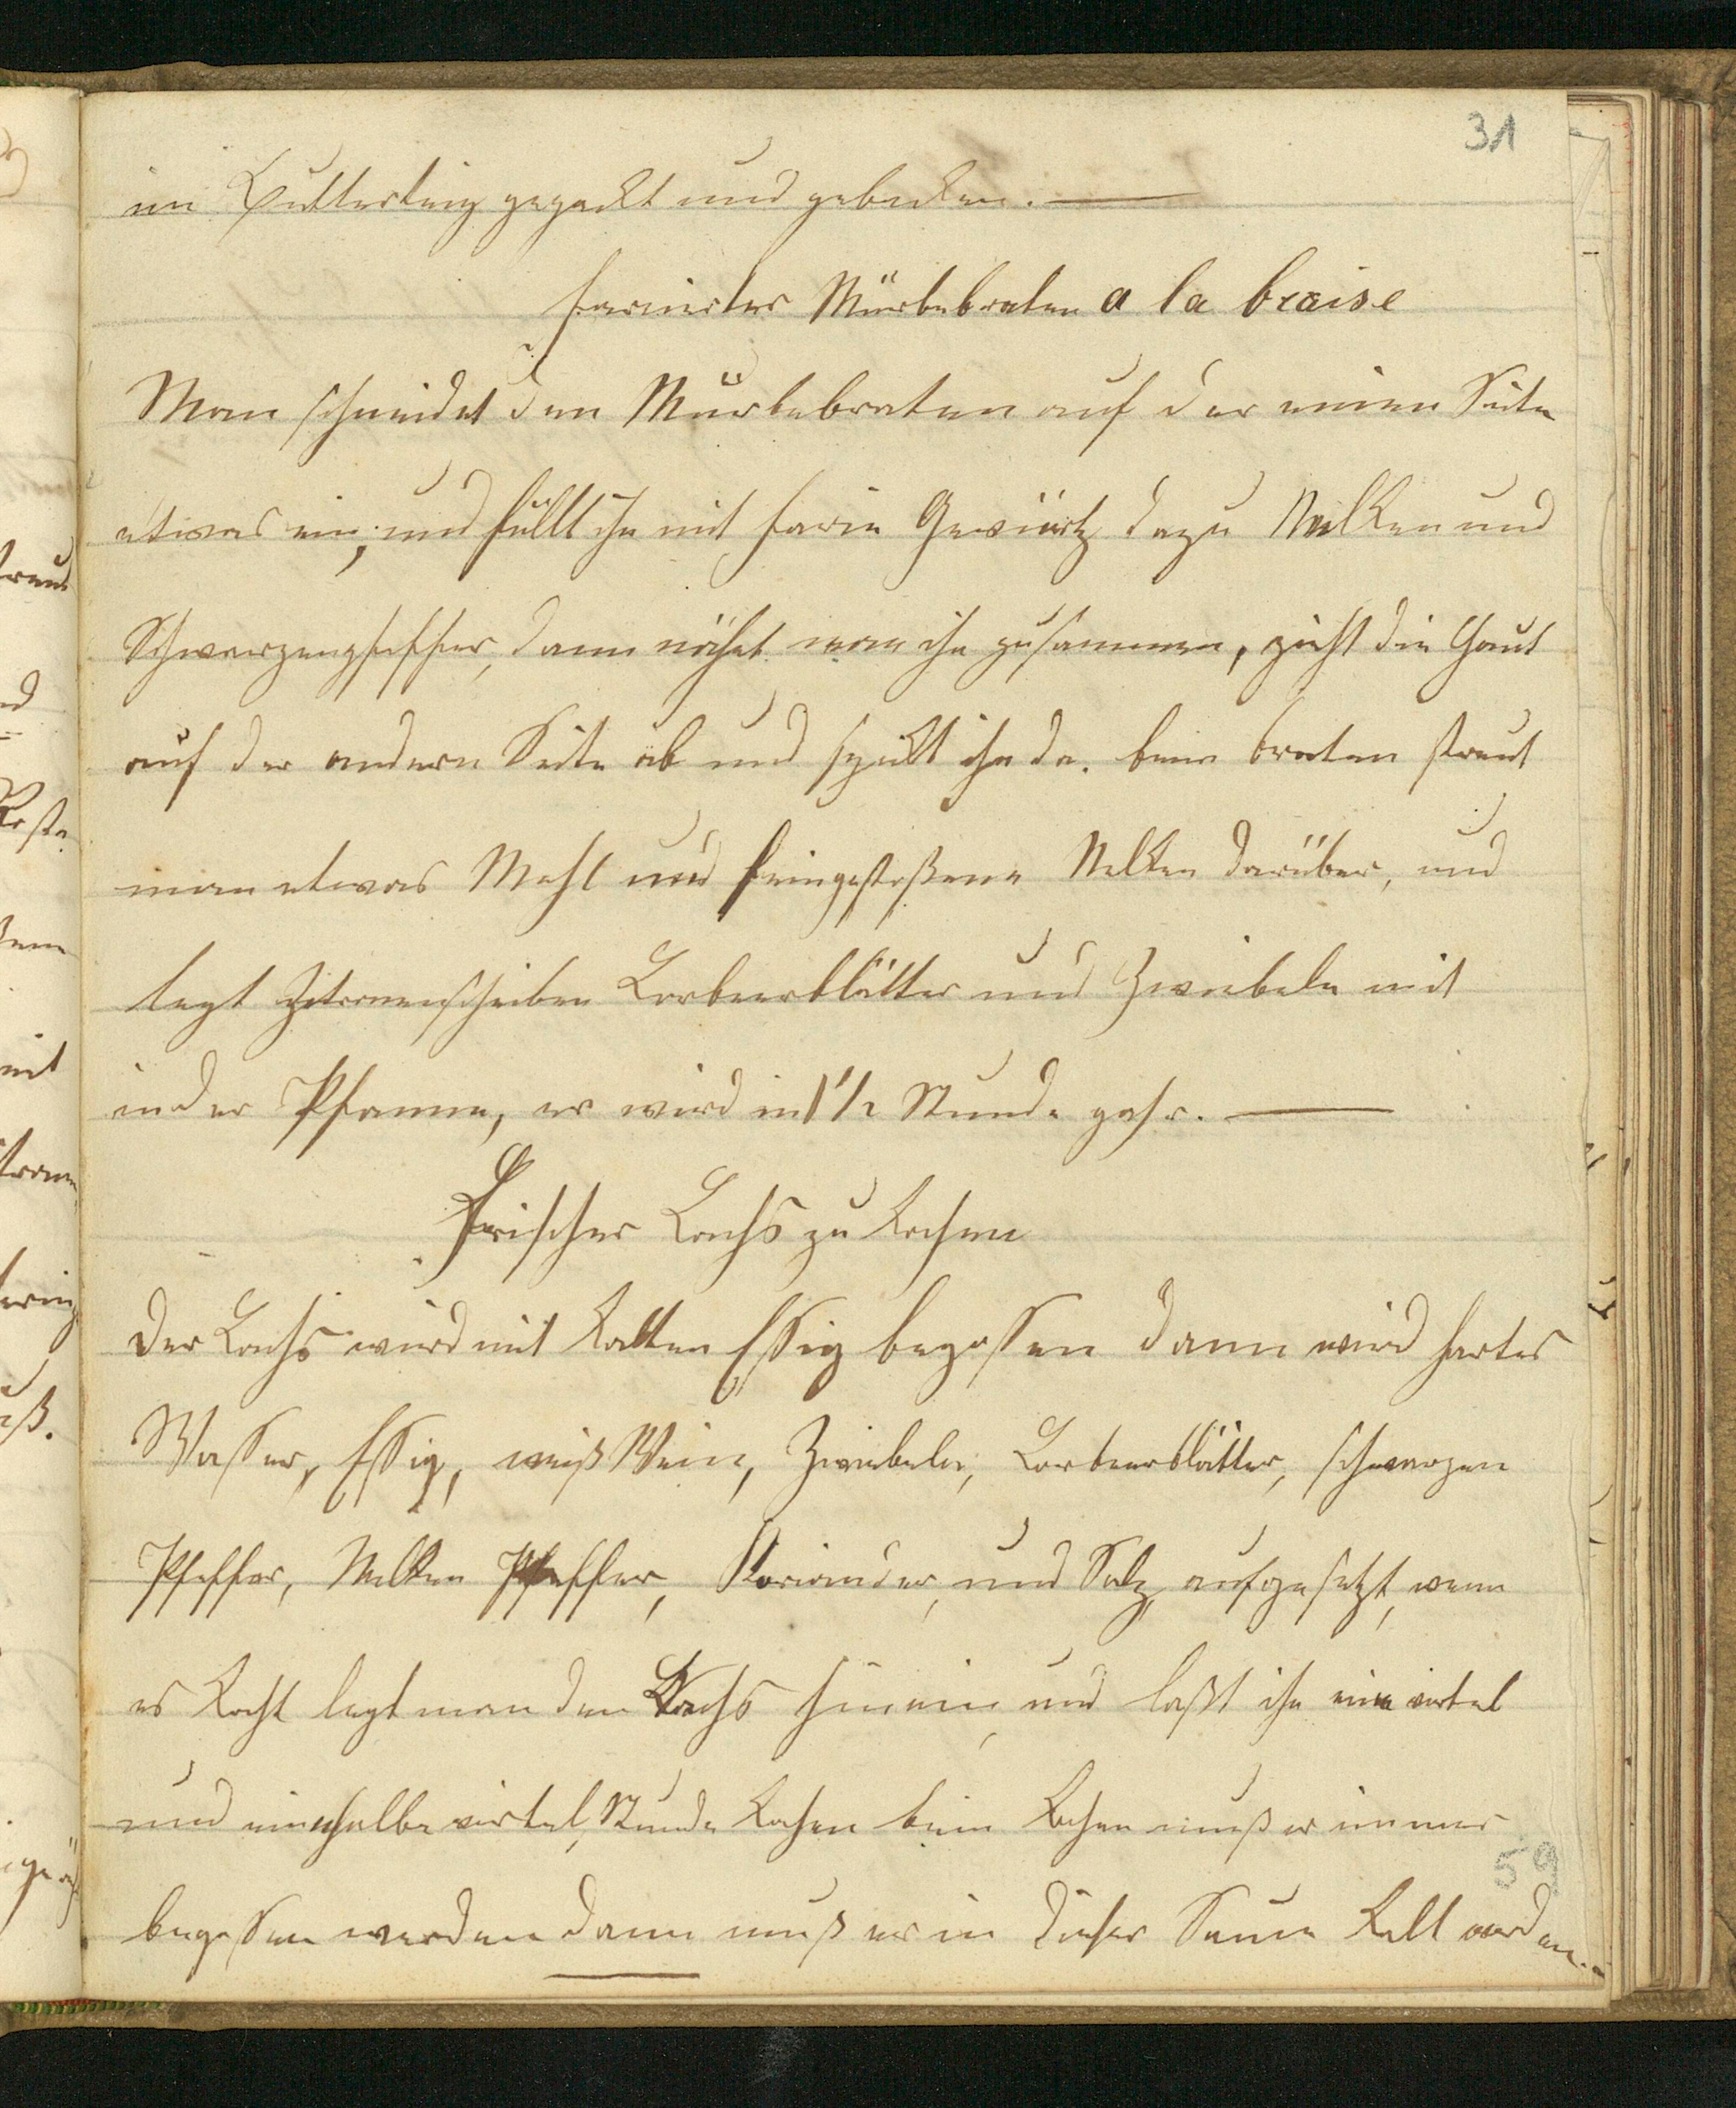 31
im Butterteig gepackt und gebacken. —
farcirter Mürbebraten a la braise
Man schneidet den Mürbebraten auf der einen Seite
etwas ein, und füllt ihn mit farce Gewürtz dazu Nelken und
Schwarzenpfeffer, dann nähet man ihn zusammen, zieht die Haut
auf der andern Seite ab und spickt ihn da. beim braten streut
man etwas Mehl und feingestoßene Nelken darüber, und
legt Zitronenscheiben Lorbeerblätter und Zwiebeln mit
in der Pfanne, er wird in 1 1/2 Stunde gahr. —
Frischer Lachs zu kochen
Der Lachs wird mit kalten Essig begossen dann wird hartes
Wasser, Essig, weiß Wein, Zwiebeln, Lorbeerblätter, schwarzen
Pfeffer, Nelken Pfeffer, Koriander, und Salz, aufgesetzt, wenn
es kocht legt man den Lachs hinein, und laßt ihn eine virtel
und eine halbe virtel Stunde kochen beim kochen muß er immer
59
begossen werden dann muß er in dieser Sauce kalt werden. -